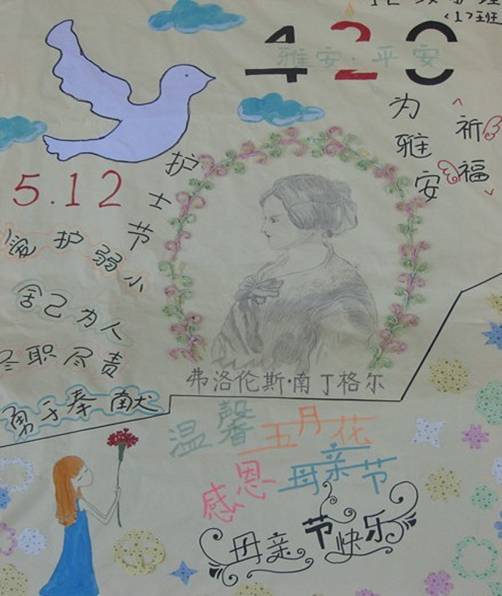 <17班
420
雅安·平安
为雅安
祈福
5.12
护士节
爱护弱小
舍己为人
尽职尽责
勇于奉献
弗洛伦斯·南丁格尔
温馨五月花
感恩母亲节
母亲节快乐